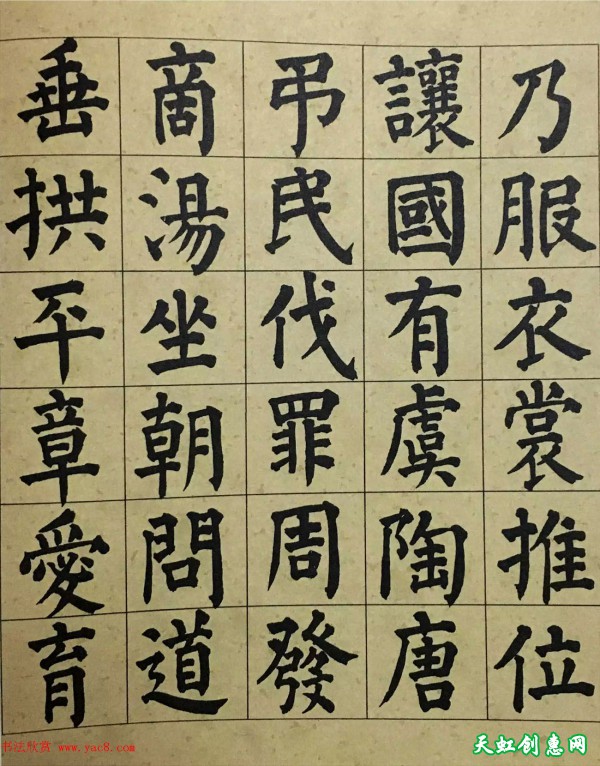 乃服衣裳推位
讓國有虞陶唐
弔民伐罪周發
商湯坐朝問道
垂拱平章愛育
书法欣赏 www.yac8.com
天虹创惠网